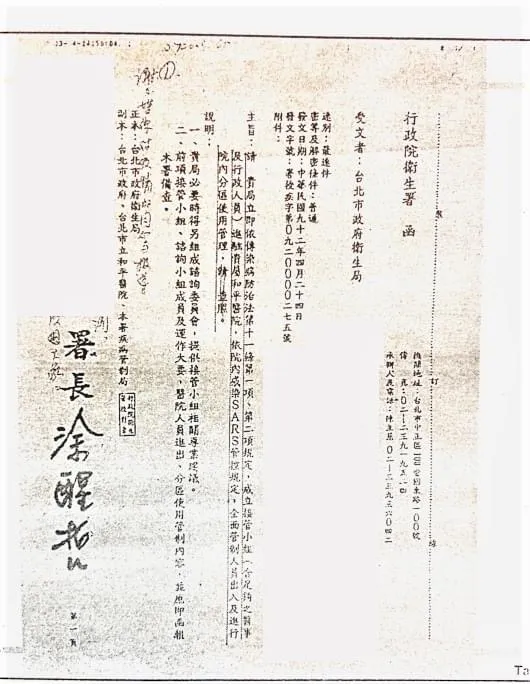 行政院衛生署　函
機關地址：台北市中正區100愛國東路一00號
受文者：台北市政府衛生局
速別：最速件
密等及解密條件：普通
發文日期：中華民國九十二年四月二十四日
發文字號：署授疾字第0九二0000二七五號
附件：
主旨：請　貴局立即依傳染病防治法第十一條第一項、第二項規定，成立接管小組（含足夠之醫事
及行政人員）進駐貴局和平醫院，依院內感染SARS管控規定，全面管制人員出入及進行
院內分區使用管理，請　查照。
說明：
一、貴局必要時得另組成諮詢委員會，提供接管小組相關專業建議。
二、前項接管小組、諮詢小組成員及運作大要、醫院人員進出、分區使用管制內容，並應即函報
本署備查。
正本：台北市政府衛生局
副本：台北市政府、台北市立和平醫院、本署疾病管制局
署長涂醒哲
第一頁
裝
訂
線
Ta